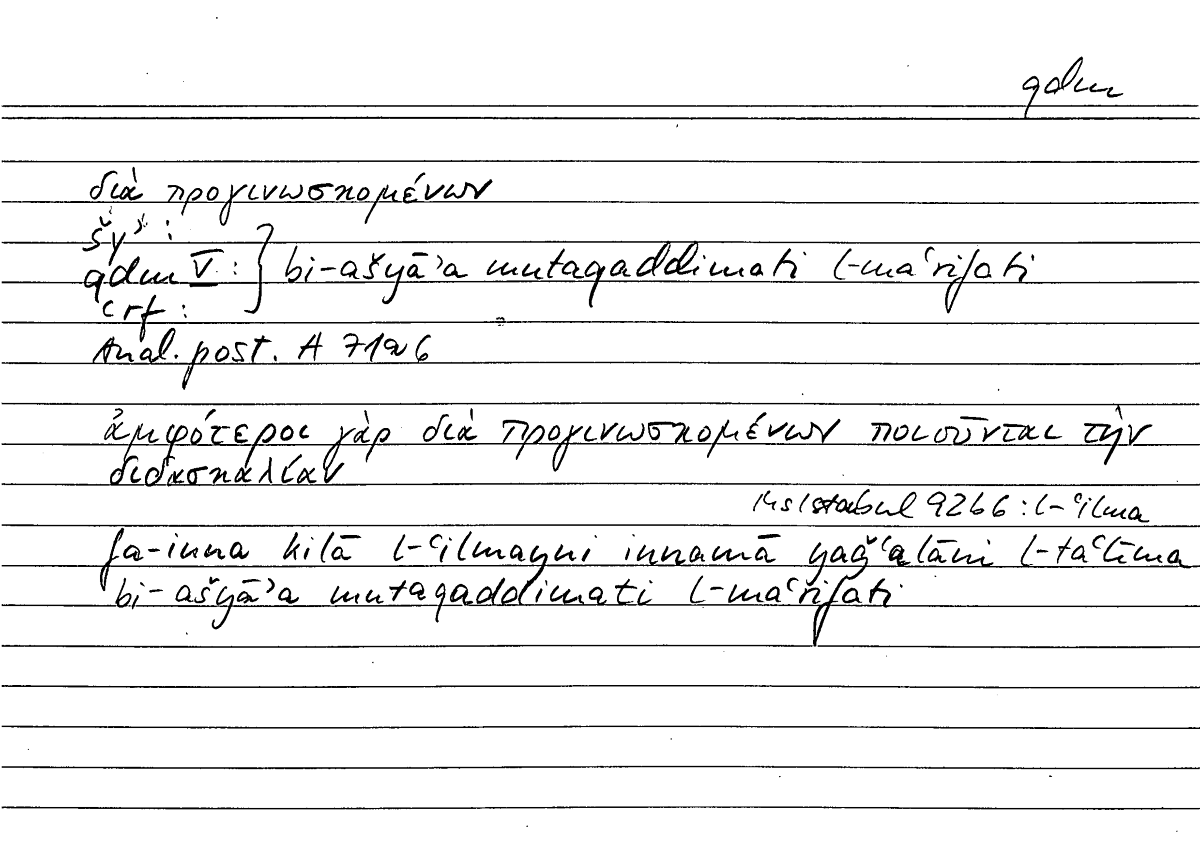 qdm
διὰ προγινωσκομένων
šyʾ :
qdm V : } bi-ašyāʾa mutaqaddimati l-maʿrifati
ʿrf :
Anal. post. A 71a6
ἀμφότεροι γὰρ διὰ προγινωσκομένων ποιοῦνται τὴν
διδασκαλίαν
Ms Istabul 9266 : l-ʿilma
fa-inna kilā l-ʿilmayni innamā yaǧʿalāni l-taʿlīma
bi-ašyāʾa mutaqaddimati l-maʿrifati